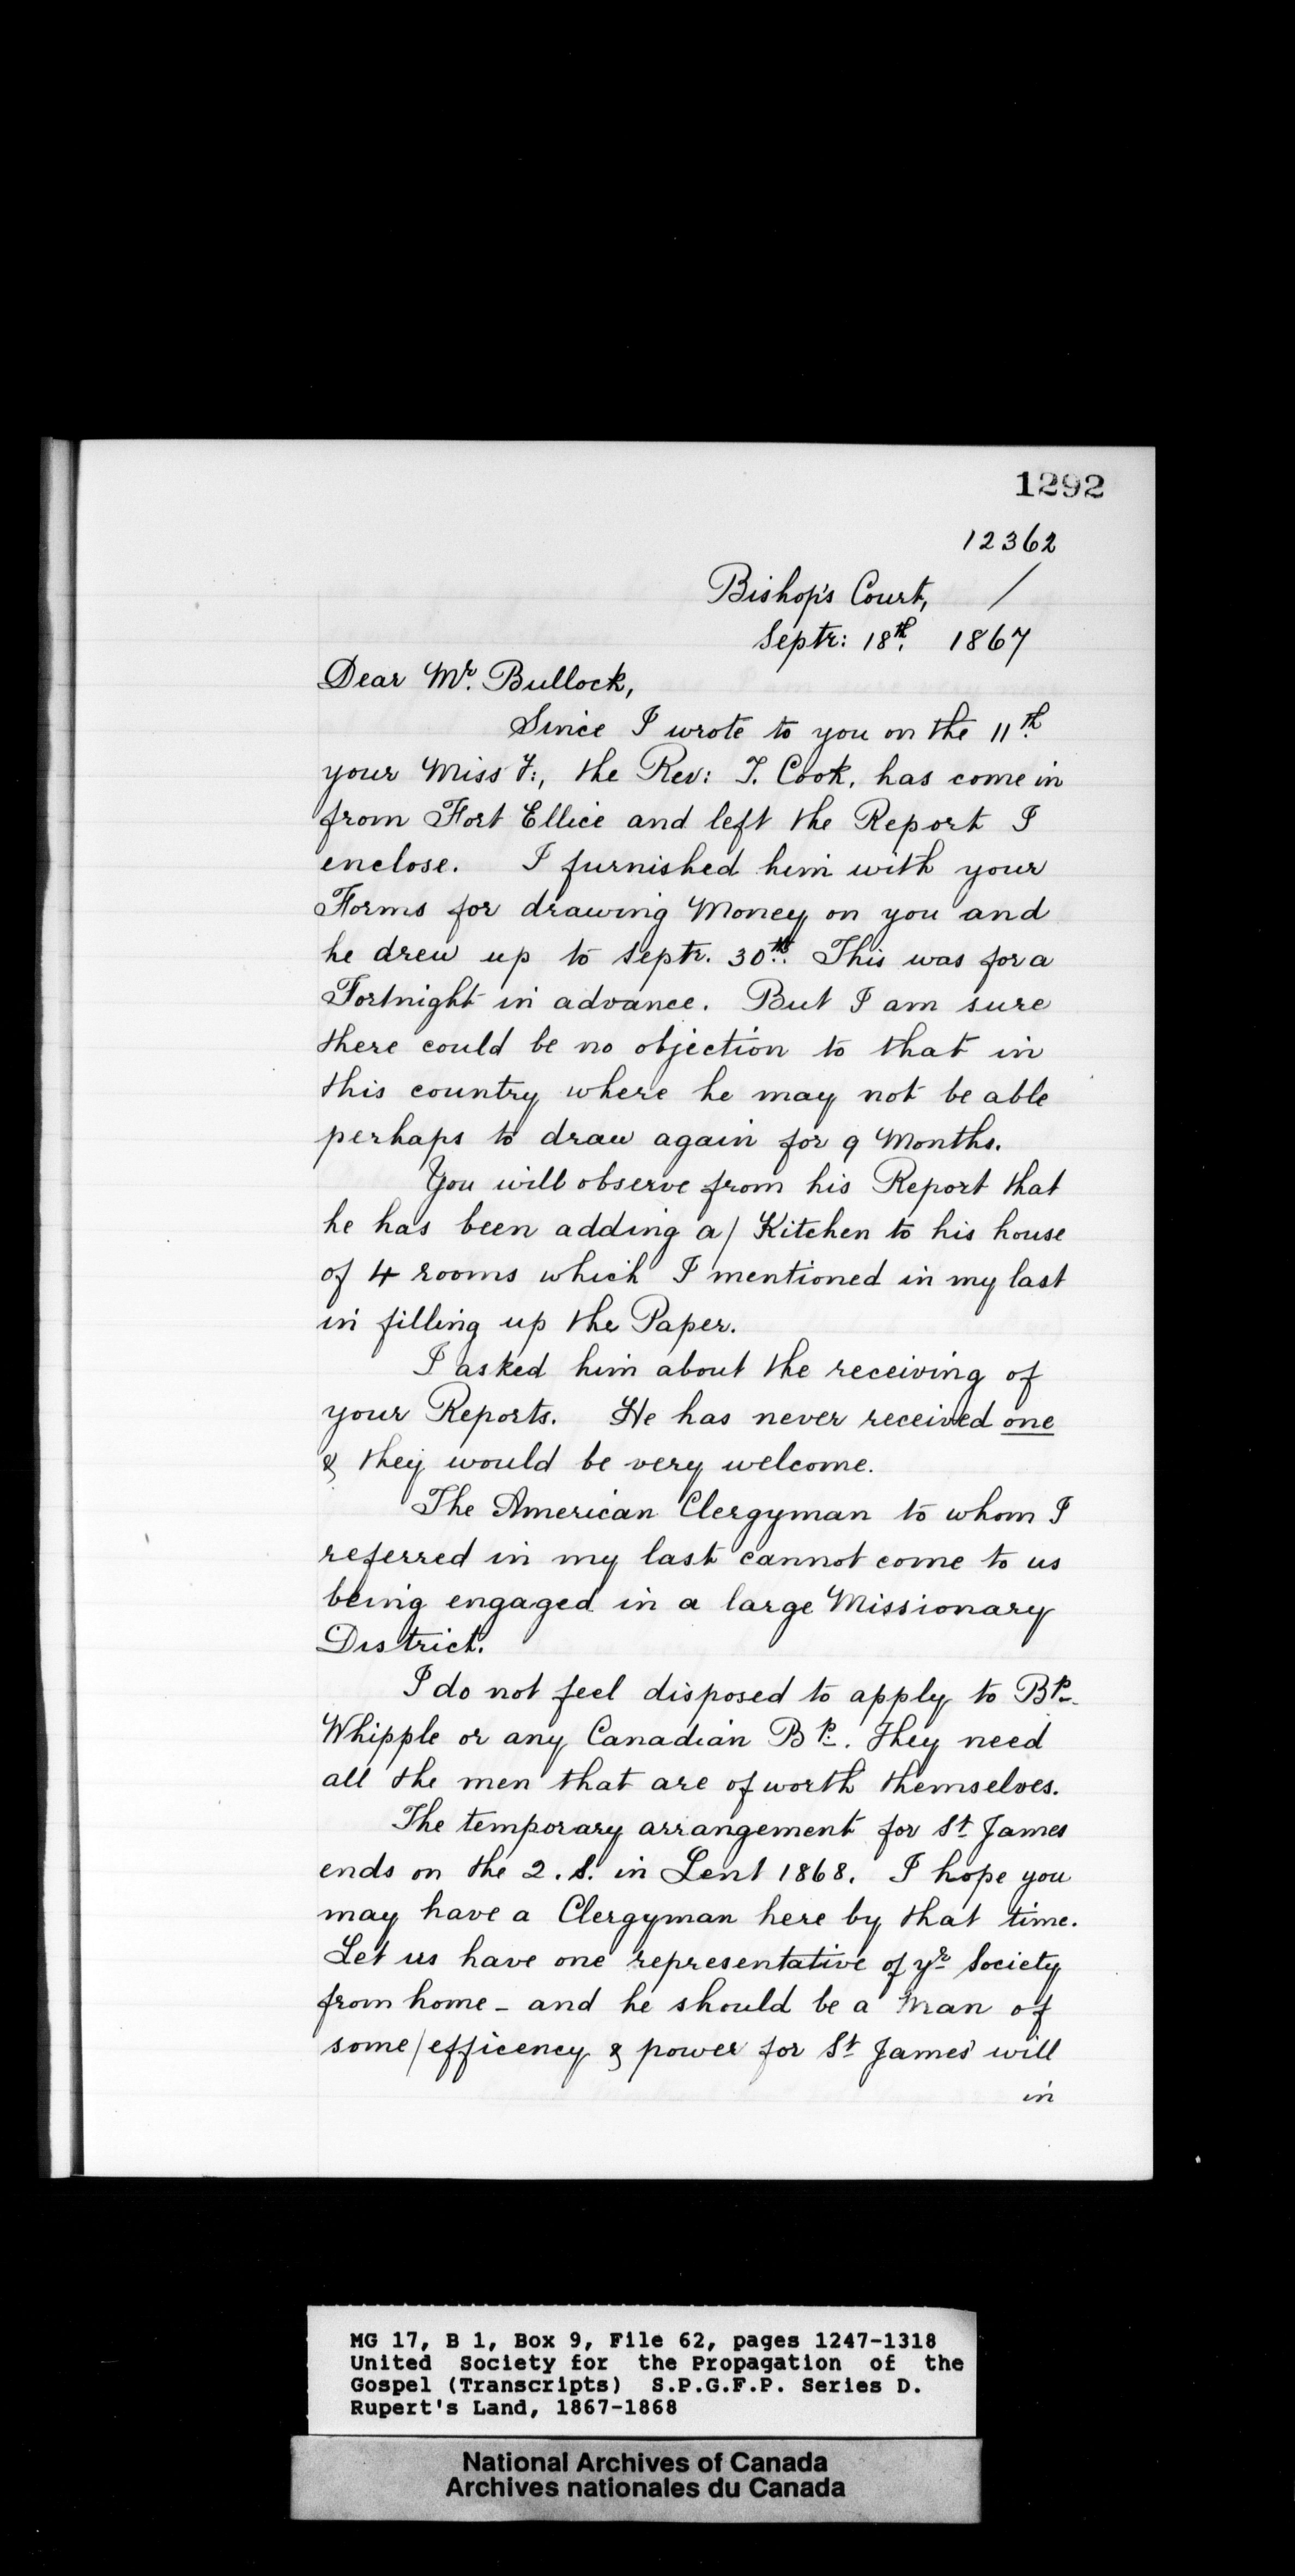 1292
12362
/
Bishop's Court,
Septr: 18th. 1867
Dear Mr. Bullock,
Since I wrote to you on the 11th.
your Miss Y:, the Rev: T. Cook, has come in
from Fort Ellice and left the Report I
enclose. I furnished him with your
Forms for drawing Money on you and
he drew up to Septr. 30th. This was for a
Fortnight in advance. But I am sure
there could be no objection to that in
this country where he may not be able
perhaps to draw again for 9 Months.
You will observe from his Report that
he has been adding a/ Kitchen to his house
of 4 rooms which I mentioned in my last
in filling up the Paper.
I asked him about the receiving of
your Reports. He has never received one
& they would be very welcome.
The American Clergyman to whom I
referred in my last cannot come to us
being engaged in a large Missionary
District.
I do not feel disposed to apply to Bp.
Whipple or any Canadian Bp. They need
all the men that are of worth themselves.
The temporary arrangement for St James
ends on the 2. S. in Lent 1868. I hope you
may have a Clergyman here by that time.
Let us have one representative of yr Society
from home - and he should be a Man of
some/efficency & power for St James' will
in
MG 17, B 1, Box 9, File 62, pages 1247-1318
United Society for the Propagation of the
Gospel (Transcripts) S.P.G.F.P. Series D.
Rupert's Land, 1867-1868
National Archives of Canada
Archives nationales du Canada